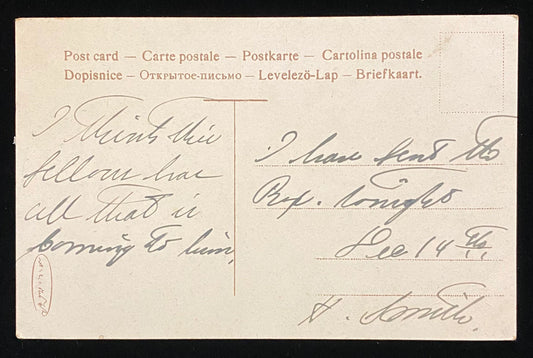 Post card — Carte postale — Postkarte — Cartolina postale
Dopisnice — Открытое-письмо — Levelező-Lap — Briefkaart.
I think this
fellow has
all that is
coming to him,
I have sent the
Box. tonight
Dec 14 th.
H. Smith.